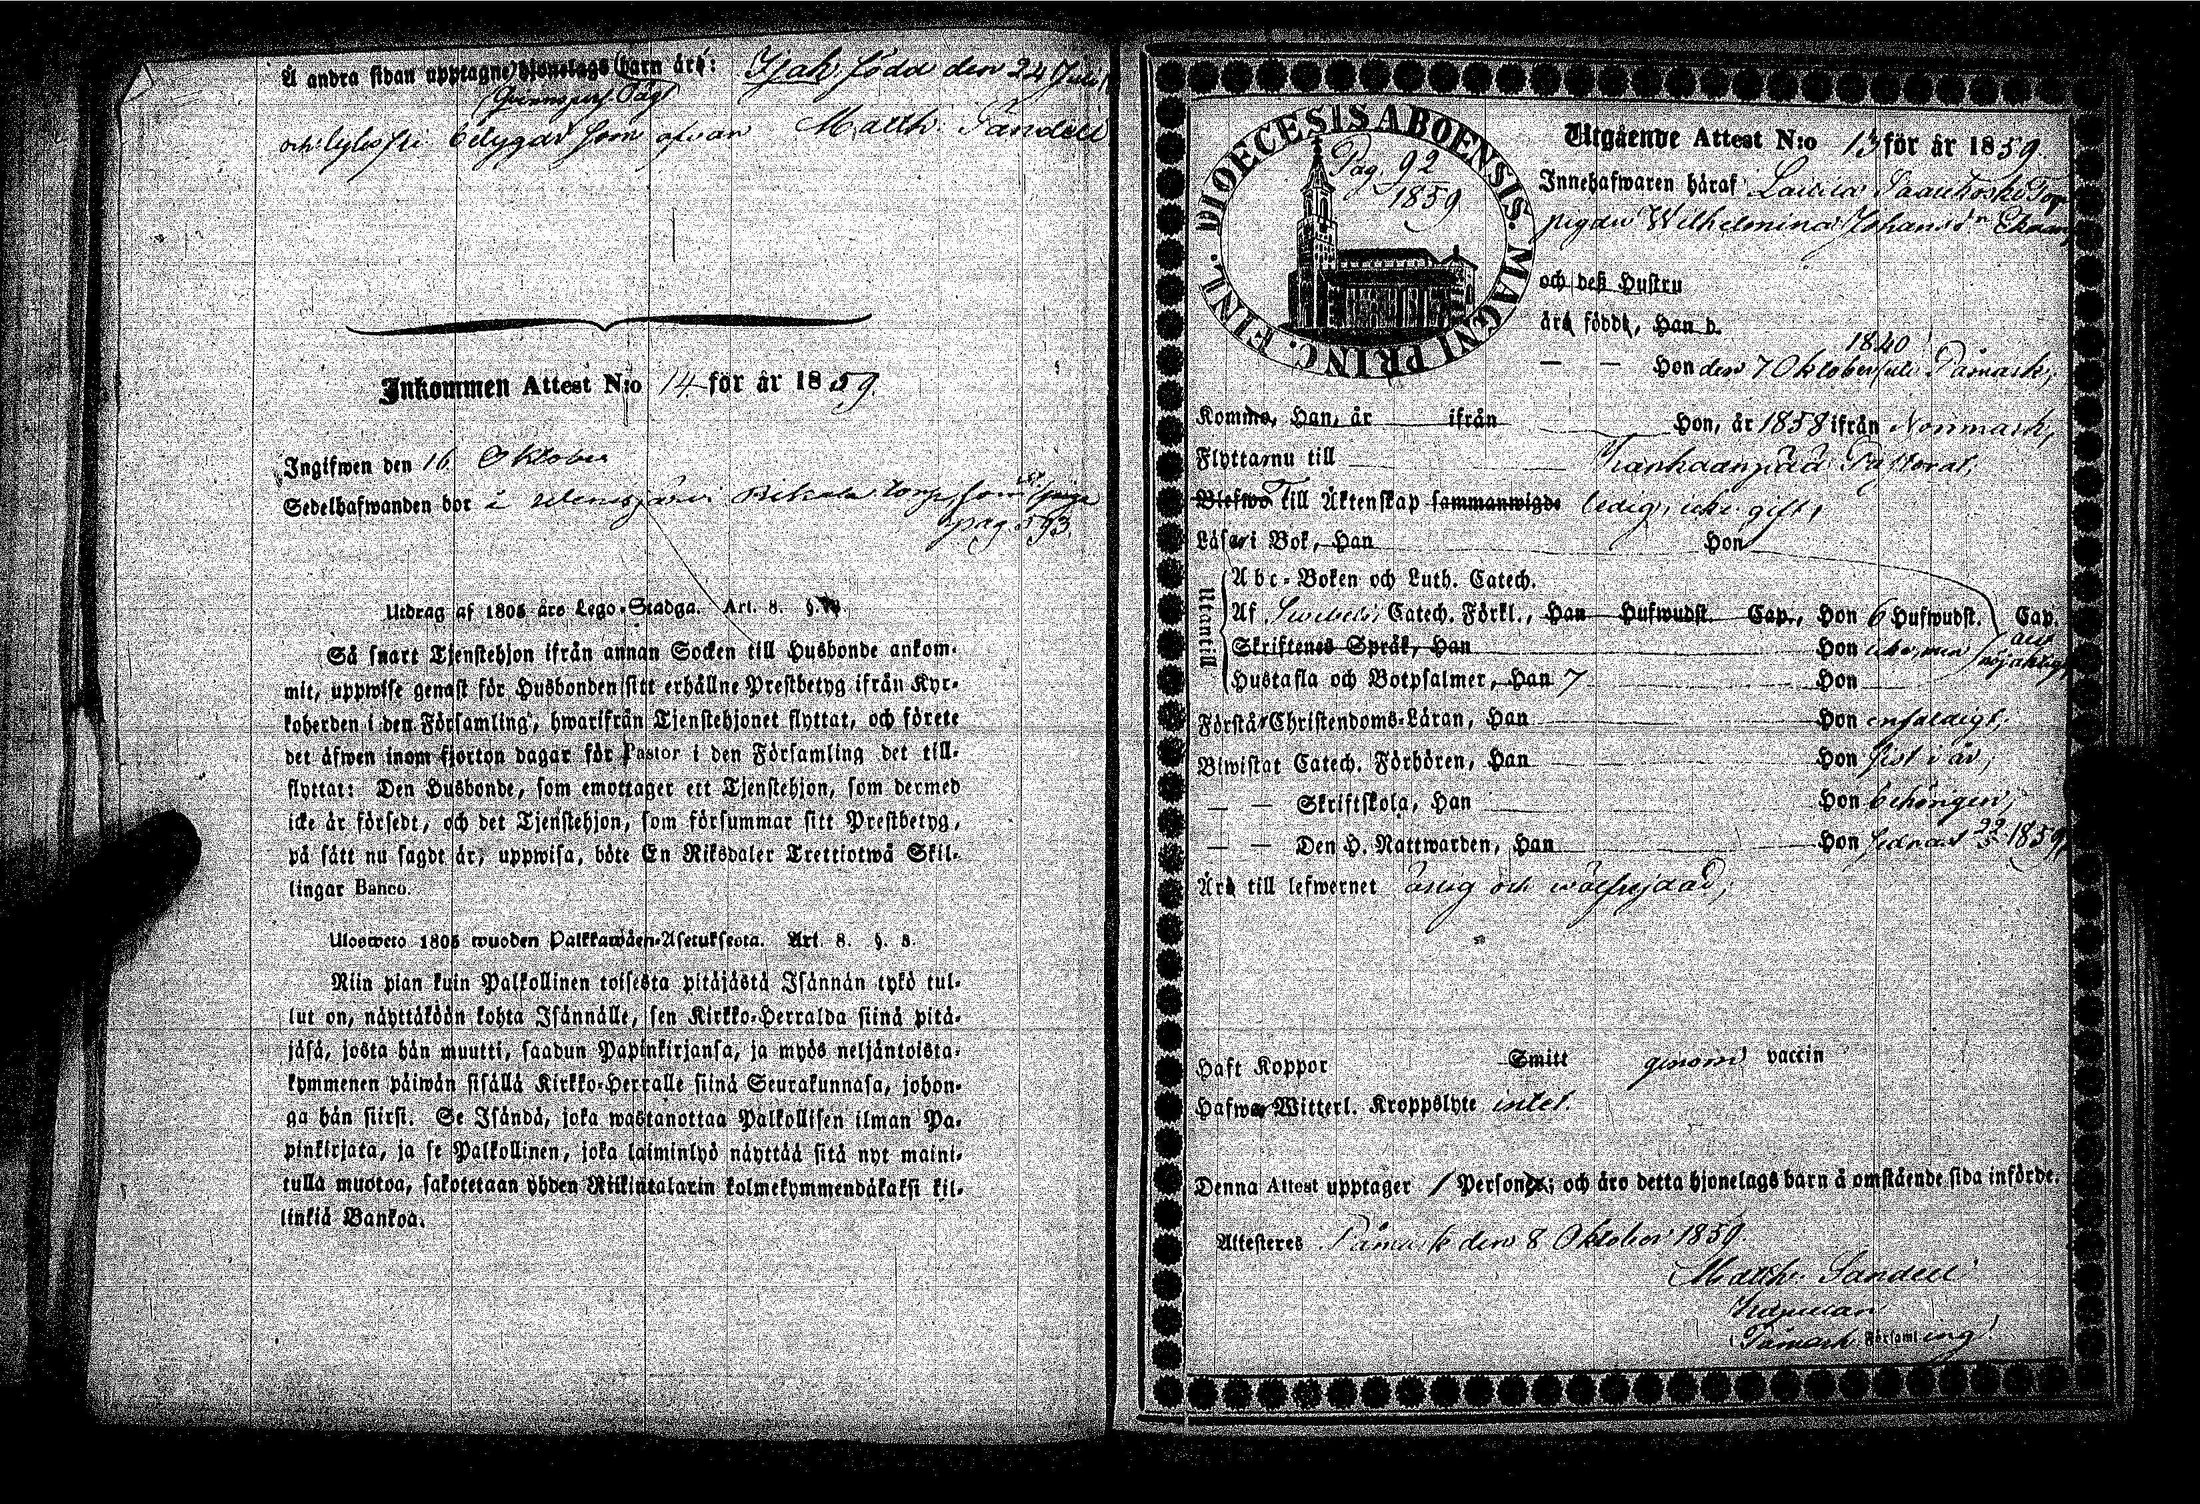 Å andra sidan upptagne hjonelags barn äro: Isak född den 24
och lyles
betygar som ofvan Matth. Sandell
Inkommen Attest N:o 14 för år 1859.
Ingifwen den 16 Oktober
Sedelhafwanden bor i torp, som
pag. 593.
Utdrag af 1805 års Lego-Stadga. Art. 8. §.
Så snart Tjenstehjon ifrån annan Socken till Husbonde ankom-
mit, uppwise genast för Husbonden sitt erhållne Prestbetyg ifrån Kyr-
koherden i den Församling, hwarifrån Tjenstehjonet flyttat, och förete
det äfwen inom fjorton dagar för Pastor i den Församling det till-
flyttat: Den Husbonde, som emottager ett Tjenstehjon, som dermed
icke är försedt, och det Tjenstehjon, som försummar sitt Prestbetyg,
på sätt nu sagdt är, uppwisa, böte En Riksdaler Trettiotwå Skil-
lingar Banco.
Ulosweto 1805 wuoden Palkkawäen-Asetuksesta. Art. 8. §. 8.
Niin pian kuin Palkollinen toisesta pitäjästä Isännän tykö tul-
lut on, näyttäköön kohta Isännälle, sen Kirkko-Herralda siinä pitä-
jäsä, josta hän muutti, saadun Papinkirjansa, ja myös neljäntoista-
kymmenen päiwän sisällä Kirkko-Herralle siinä Seurakunnasa, johon-
ga hän siirsi. Se Isändä, joka wastanottaa Palkollisen ilman Pa-
pinkirjata, ja se Palkollinen, joka laiminlyö näyttää sitä nyt maini-
tulla muotoa, sakotetaan yhden Riikintalarin kolmekymmendäkaksi kil-
linkiä Bankoa.
DIOECESIS ABOENSIS. MAGNI PRINC. FINL.
Pag. 92
1859
Utgående Attest N:o 13 för år 1859.
Innehafwaren häraf
pigan Wilhelmina Johansdr
och deß Hustru
äro födde, Han d.
1840
— — Hon den 7 Oktober uti Påmark,
Komme, Han, år ifrån Hon, år 1858 ifrån Norrmark,
Flyttarnu till Kankaanpää Pastorat,
Blefwo till Äktenskap sammanwigde ledig, icke gift,
Läser i Bok, Han Hon
Utantill
Abc-Boken och Luth. Catech.
Af Swebelii Catech. Förkl., Han Hufwudst. Cap., Hon 6 Hufwudst. Cap.
Skriftenes Språk, Han Hon
Hustafla och Botpsalmer, Han 7 Hon
Förstår Christendoms-Läran, Han Hon enfaldigt,
Biwistat Catech. Förhören, Han Hon sist i år,
— — Skriftskola, Han Hon behörigen,
— — Den H. Nattwarden, Han Hon sednast 22/5 1859,
Äro till lefwernet ärlig och wälfrejdad,
Haft Koppor Smitt genom vaccin
Hafwer Witterl. Kroppslyte intet.
Denna Attest upptager 1 Person; och äro detta hjonelags barn å omstående sida införde.
Attesteras Påmark den 8 Oktober 1859
Matth. Sandell
Kapellan
i Påmark Församling